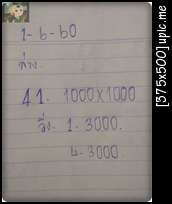 1-6-60
ล่าง.
41. 1000X1000
วิ่ง 1. 3000.
4-3000
[375x500] upic.me